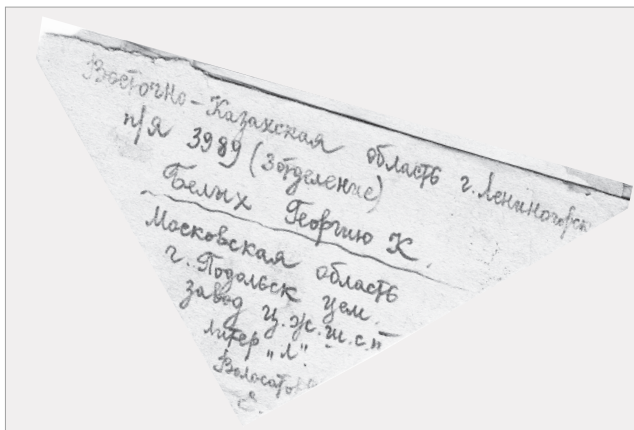 Восточно-Казахская область г. Лениногорск
п/я 3989 (3 отделение)
Белых Георгию К.
Московская область
г. Подольск цем.
завод ц.ж.ш.с.п
литер „Л".